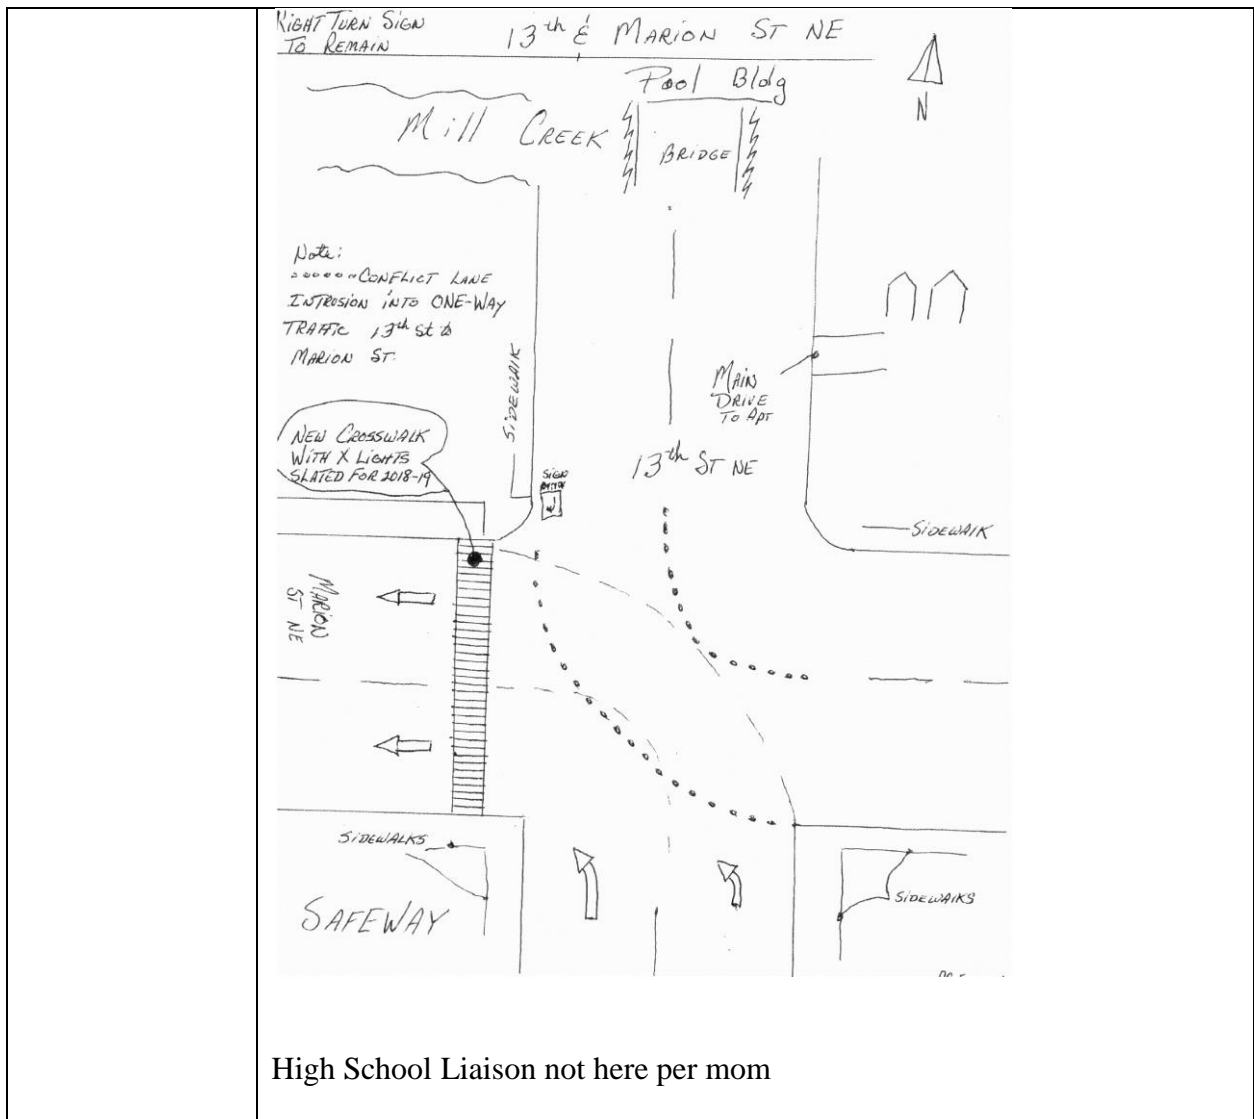 RIGHT TURN SIGN
TO REMAIN
13th & MARION ST NE
Pool Bldg
N
Mill CREEK
BRIDGE
Note:
CONFLICT LANE
INTRUSION INTO ONE-WAY
TRAFFIC 13th St to
MARION ST.
SIDEWALK
MAIN
DRIVE
TO APT
NEW CROSSWALK
WITH X LIGHTS
SLATED FOR 2018-19
13th ST NE
SIGN
SIDEWALK
MARION
ST NE
SIDEWALKS
SAFEWAY
SIDEWALKS
High School Liaison not here per mom